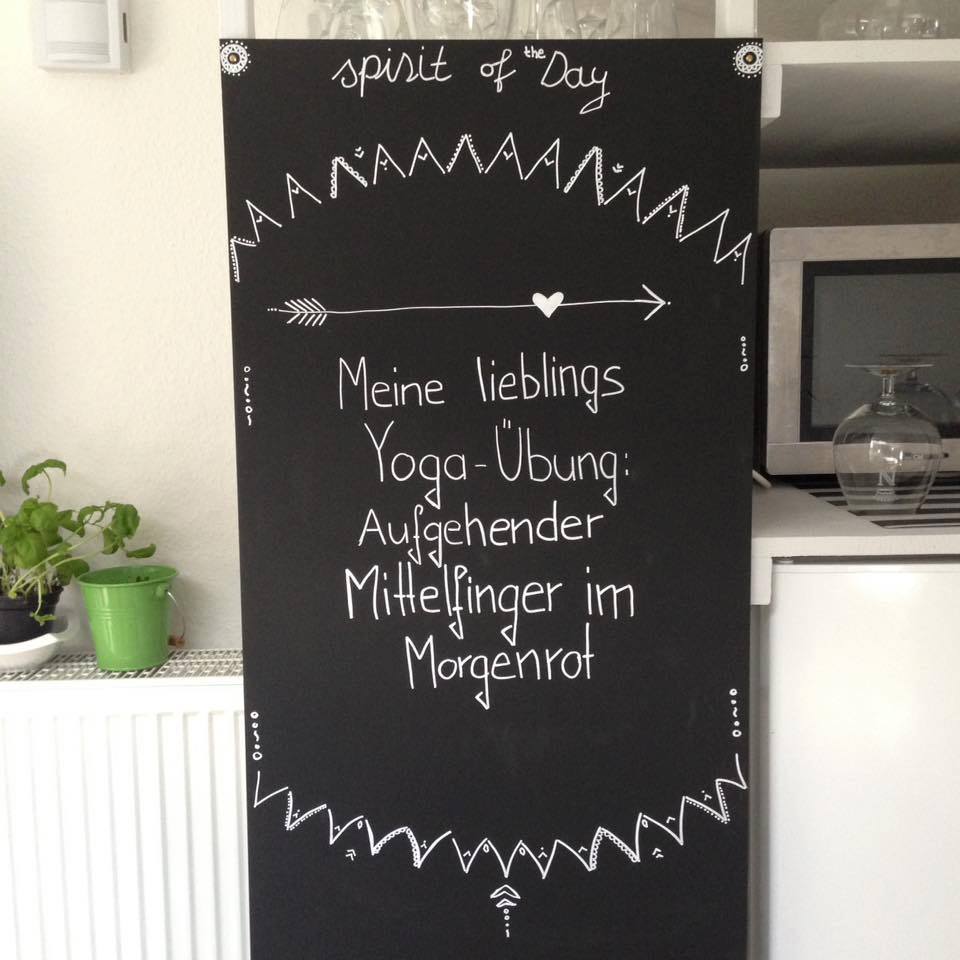 spirit of the Day
Meine lieblings
Yoga-Übung:
Aufgehender
Mittelfinger im
Morgenrot
N